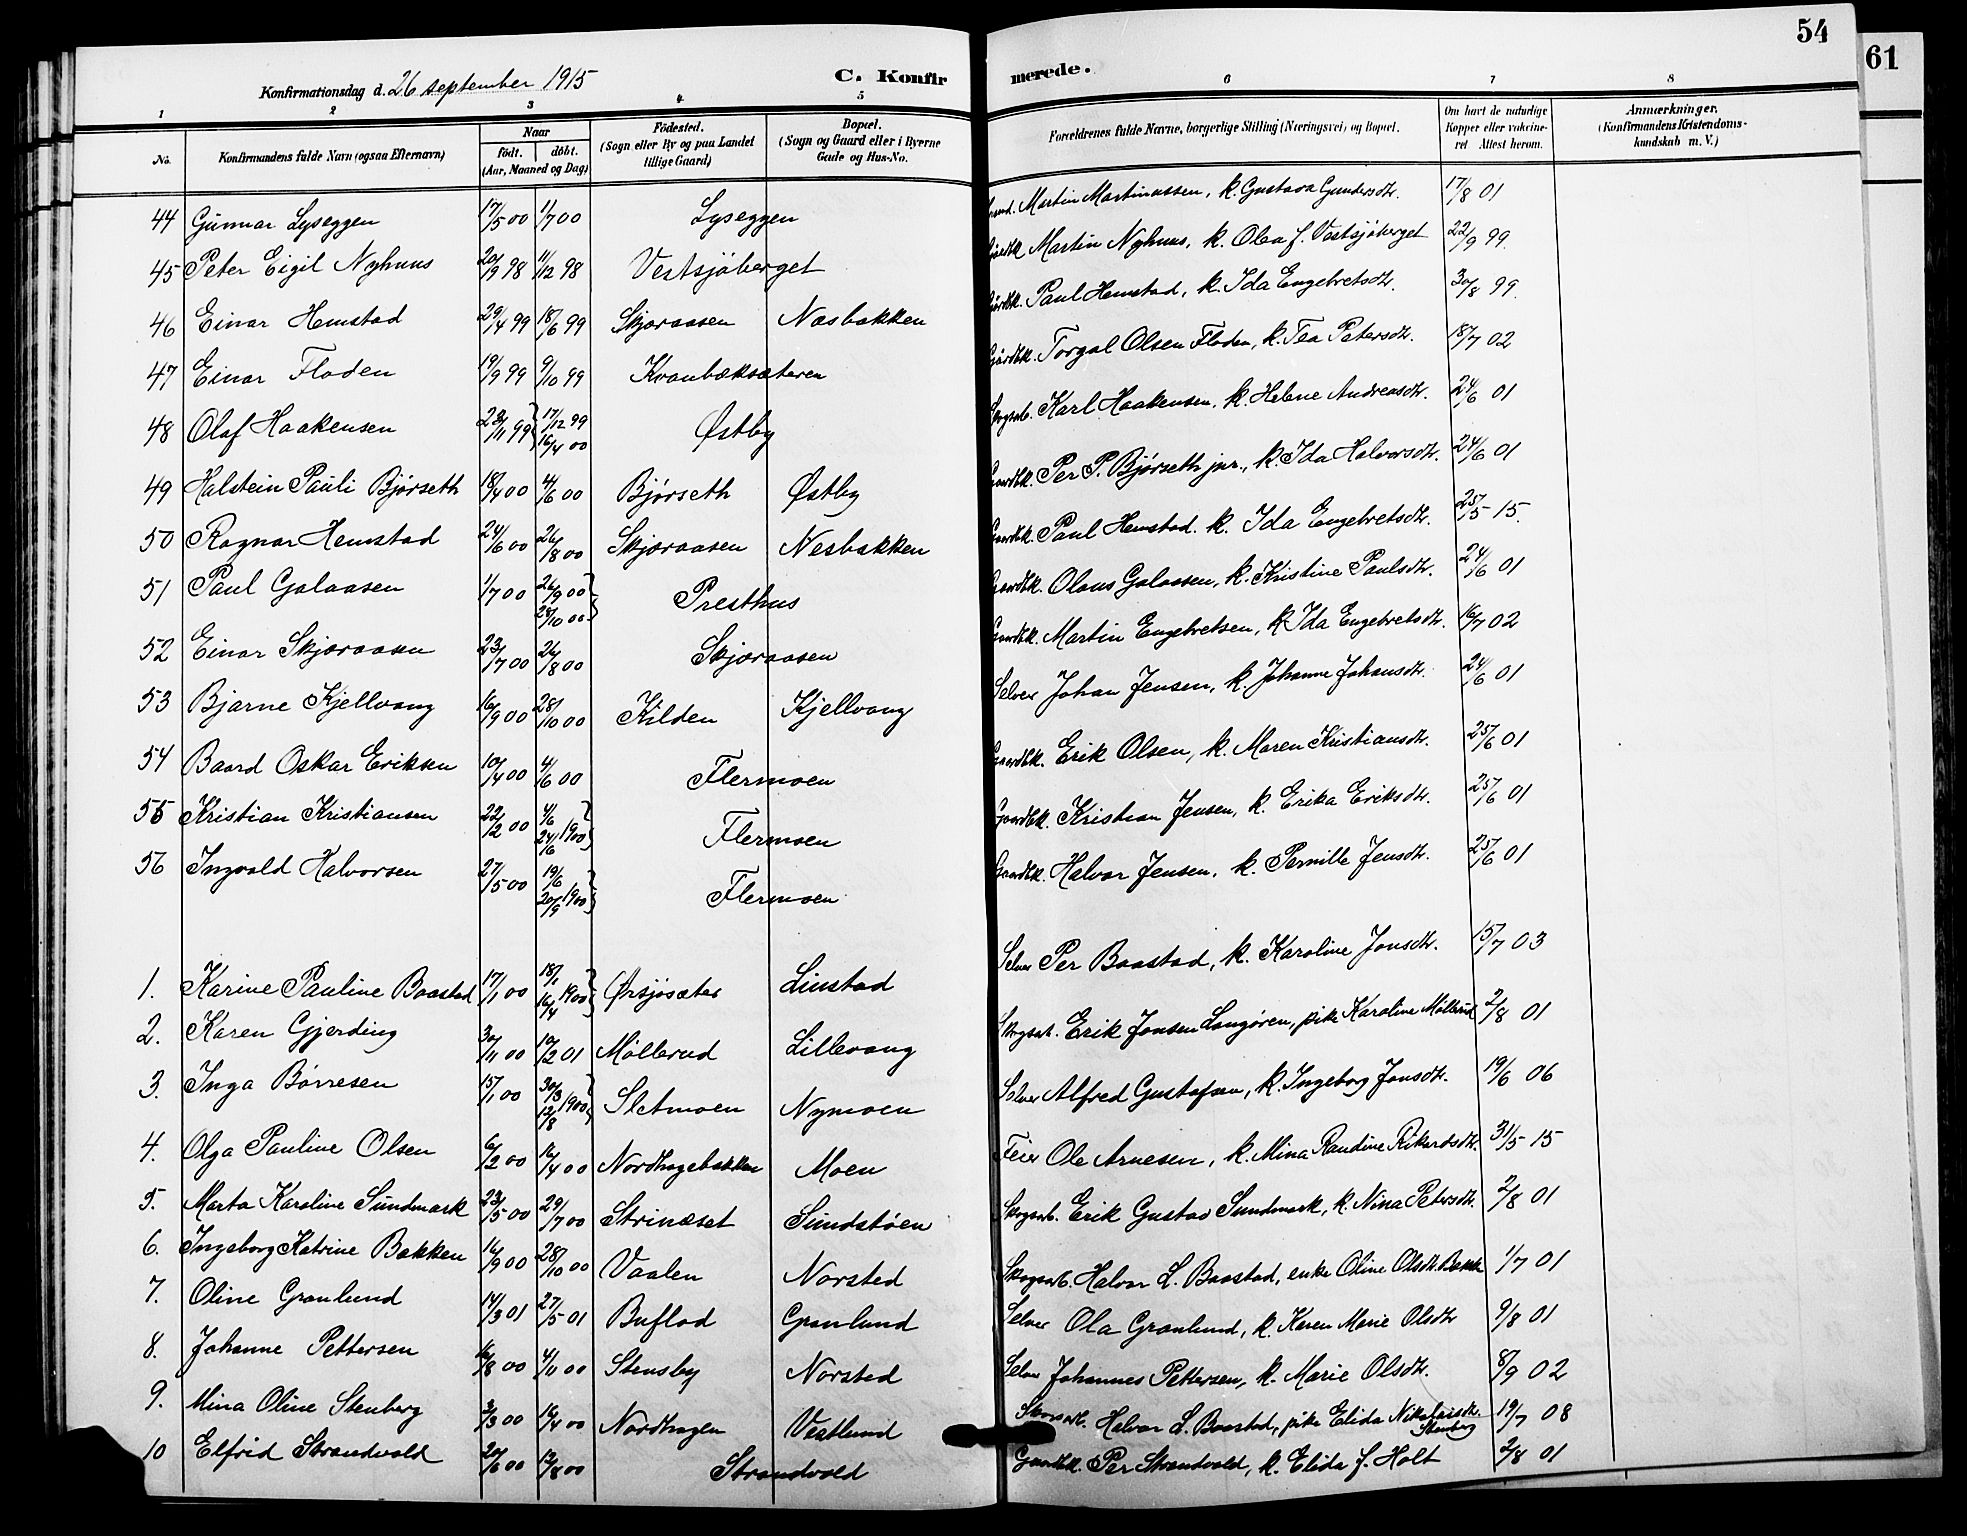 54
61
Konfirmationsdag d. 26 september 1915
C. Konfir
merede.
1 2 3 4 5 6 7 8
No. Konfirmandens fulde Navn (ogsaa Efternavn) Naar født. døbt. (Aar, Maaned og Dag) Fødested. (Sogn eller By og paa Landet tillige Gaard) Bopæl. (Sogn og Gaard eller i Byerne Gade og Hus-No. Forældrenes fulde Navne, borgerlige Stilling (Næringsvei) og Bopæl. Om havt de naturlige Kopper eller vakcineret Attest herom. Anmærkninger. (Konfirmandens Kristendomskundskab m. V.)
44 Gunnar Lyseggen 17/5 00 1/7 00 Lyseggen Martin Martinussen, k. Gustava Gundersdtr. 17/8 01
45 Peter Eigil Nyhuus 20/9 98 11/12 98 Vestsjøberget Martin Nyhuus, k. Olea f. Vestsjøberget 22/9 99
46 Einar Hemstad 29/4 99 18/6 99 Skjæraasen Næsbakken Paul Hemstad, k. Ida Engebretsdtr. 30/8 99.
47 Einar Floden 19/9 99 9/10 99 Kvanbæksæteren Gårdbk. Torgal Olsen Floden, k. Tea Petersdtr. 18/7 02
48 Olaf Haakensen 23/11 99 17/12 99 16/4 00 Østby Skogsarb. Karl Haakensen, k. Helene Andreasdtr. 24/6 01
49 Halstein Pauli Bjørseth 18/4 00 4/6 00 Bjørseth Østby Gaardbk. Per P. Bjørseth jnr., k. Ida Halvorsdtr. 24/6 01
50 Ragnar Hemstad 24/6 00 26/8 00 Skjæraasen Nesbakken Gaardbk. Paul Hemstad. k. Ida Engebretsdtr. 25/5 15.
51 Paul Galaasen 1/7 00 26/9 00 28/10 00 Presthus Gaardbk. Olaus Galaasen, k. Kristine Paulsdtr. 24/6 01
52 Einar Skjæraasen 23/7 00 26/8 00 Skjæraasen Gaardbk. Martin Engebretsen, k. Ida Engebretsdtr. 16/7 02
53 Bjarne Kjellvang 16/9 00 28/10 00 Kilden Kjellvang Selveier Johan Jensen, k. Johanne Johansdtr. 24/6 01
54 Baard Oskar Eriksen 10/4 00 4/6 00 Flermoen Gaardbk. Erik Olsen, k. Maren Kristiansdtr. 25/6 01
55 Kristian Kristiansen 22/2 00 4/6 24/6 1900 Flermoen Gaardbk. Kristian Jensen, k. Erika Eriksdtr. 25/6 01
56 Ingvald Halvorsen 27/5 00 19/6 20/9 1900 Flermoen Gaardbk. Halvor Jensen, k. Pernille Jensdtr. 25/6 01
1. Karine Pauline Baastad 17/1 00 18/1 16/4 1900 Ørsjøsæter Linstad Selver Per Baastad, k. Karoline Jonsdtr. 15/7 03
2. Karen Gjerding 30/11 00 10/2 01 Møllerud Lillevang Skogsarb. Erik Jonsen Langøren, pike Karoline Møllerud 2/8 01
3. Inga Børresen 15/1 00 30/3 12/8 1900 Sletmoen Nymoen Selver Alfred Gustafsen, k. Ingeborg Jonsdtr. 19/6 06
4. Olga Pauline Olsen 6/2 00 16/4 00 Nordhagebakken Moen Feier Ole Arnesen, k. Mina Randine Rikardsdtr. 31/5 15
5. Marta Karoline Sundmark 23/5 00 29/7 00 Strinæset Sundstøen Skogsarb. Erik Gustav Sundmark, k. Nina Petersdtr. 2/8 01
6. Ingeborg Katrine Bakken 16/9 00 28/10 00 Vaalen Norsted Skogsarb. Halvor L. Baastad, enke Oline Olsdtr. Bakk 1/7 01
7. Oline Granlund 14/3 01 27/5 01 Buflod Granlund Selver Ola Granlund, k. Karen Marie Olsdtr 9/8 01
8. Johanne Pettersen 16/8 00 4/11 00 Stensby Norsted Selver Johannes Pettersen, k. Marie Olsdtr. 8/9 02
9. Mina Oline Stenberg 3/3 00 16/4 00 Nordhagen Vestlund Skogsarb. Halvor L. Baastad, pike Elida Nikolaisdtr. Stenberg 19/7 08
10 Elfrid Strandvold 20/6 00 12/8 00 Strandvold Gaardbk. Per Strandvold, k. Elida f. Holt 2/8 01